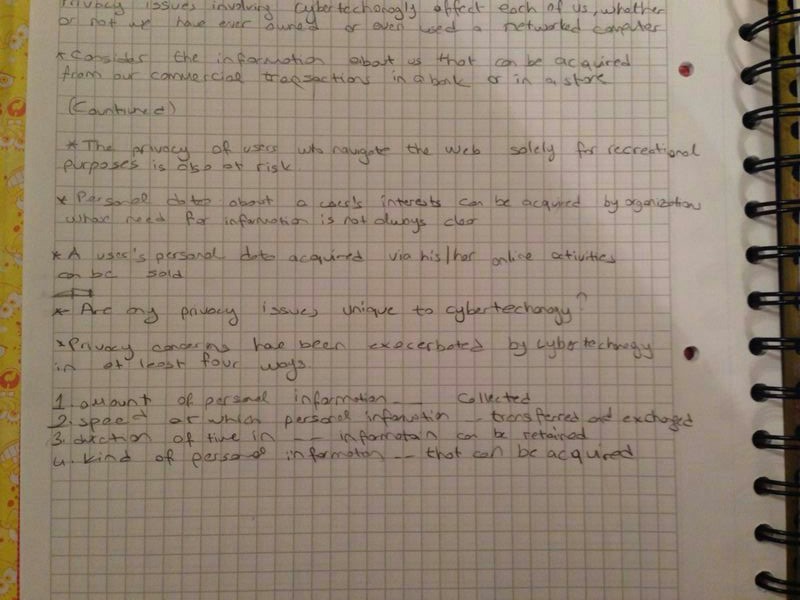 Privacy issues involving cybertechongly affect each of us, whether
or not we have ever owned or even used a networked computer
* Consider the information about us that can be acquired
from our commercial transactions in a bank or in a store
(Countiued)
* The privacy of users who navigate the web solely for recreational
purposes is also at risk
* Personal data about a user's interests can be acquired by organizations
whose need for information is not always clear
* A user's personal data acquired via his/her online activities
can be sold
* Are any privacy issues unique to cybertechongy?
* Privacy concerns have been exacerbated by cybertechnogy
in at least four ways.
1. amount of personal information __ Collected
2. speed at which personal information __ transferred and exchanged
3. duction of time in __ informatain can be retained
4. kind of personal informaton __ that can be acquired